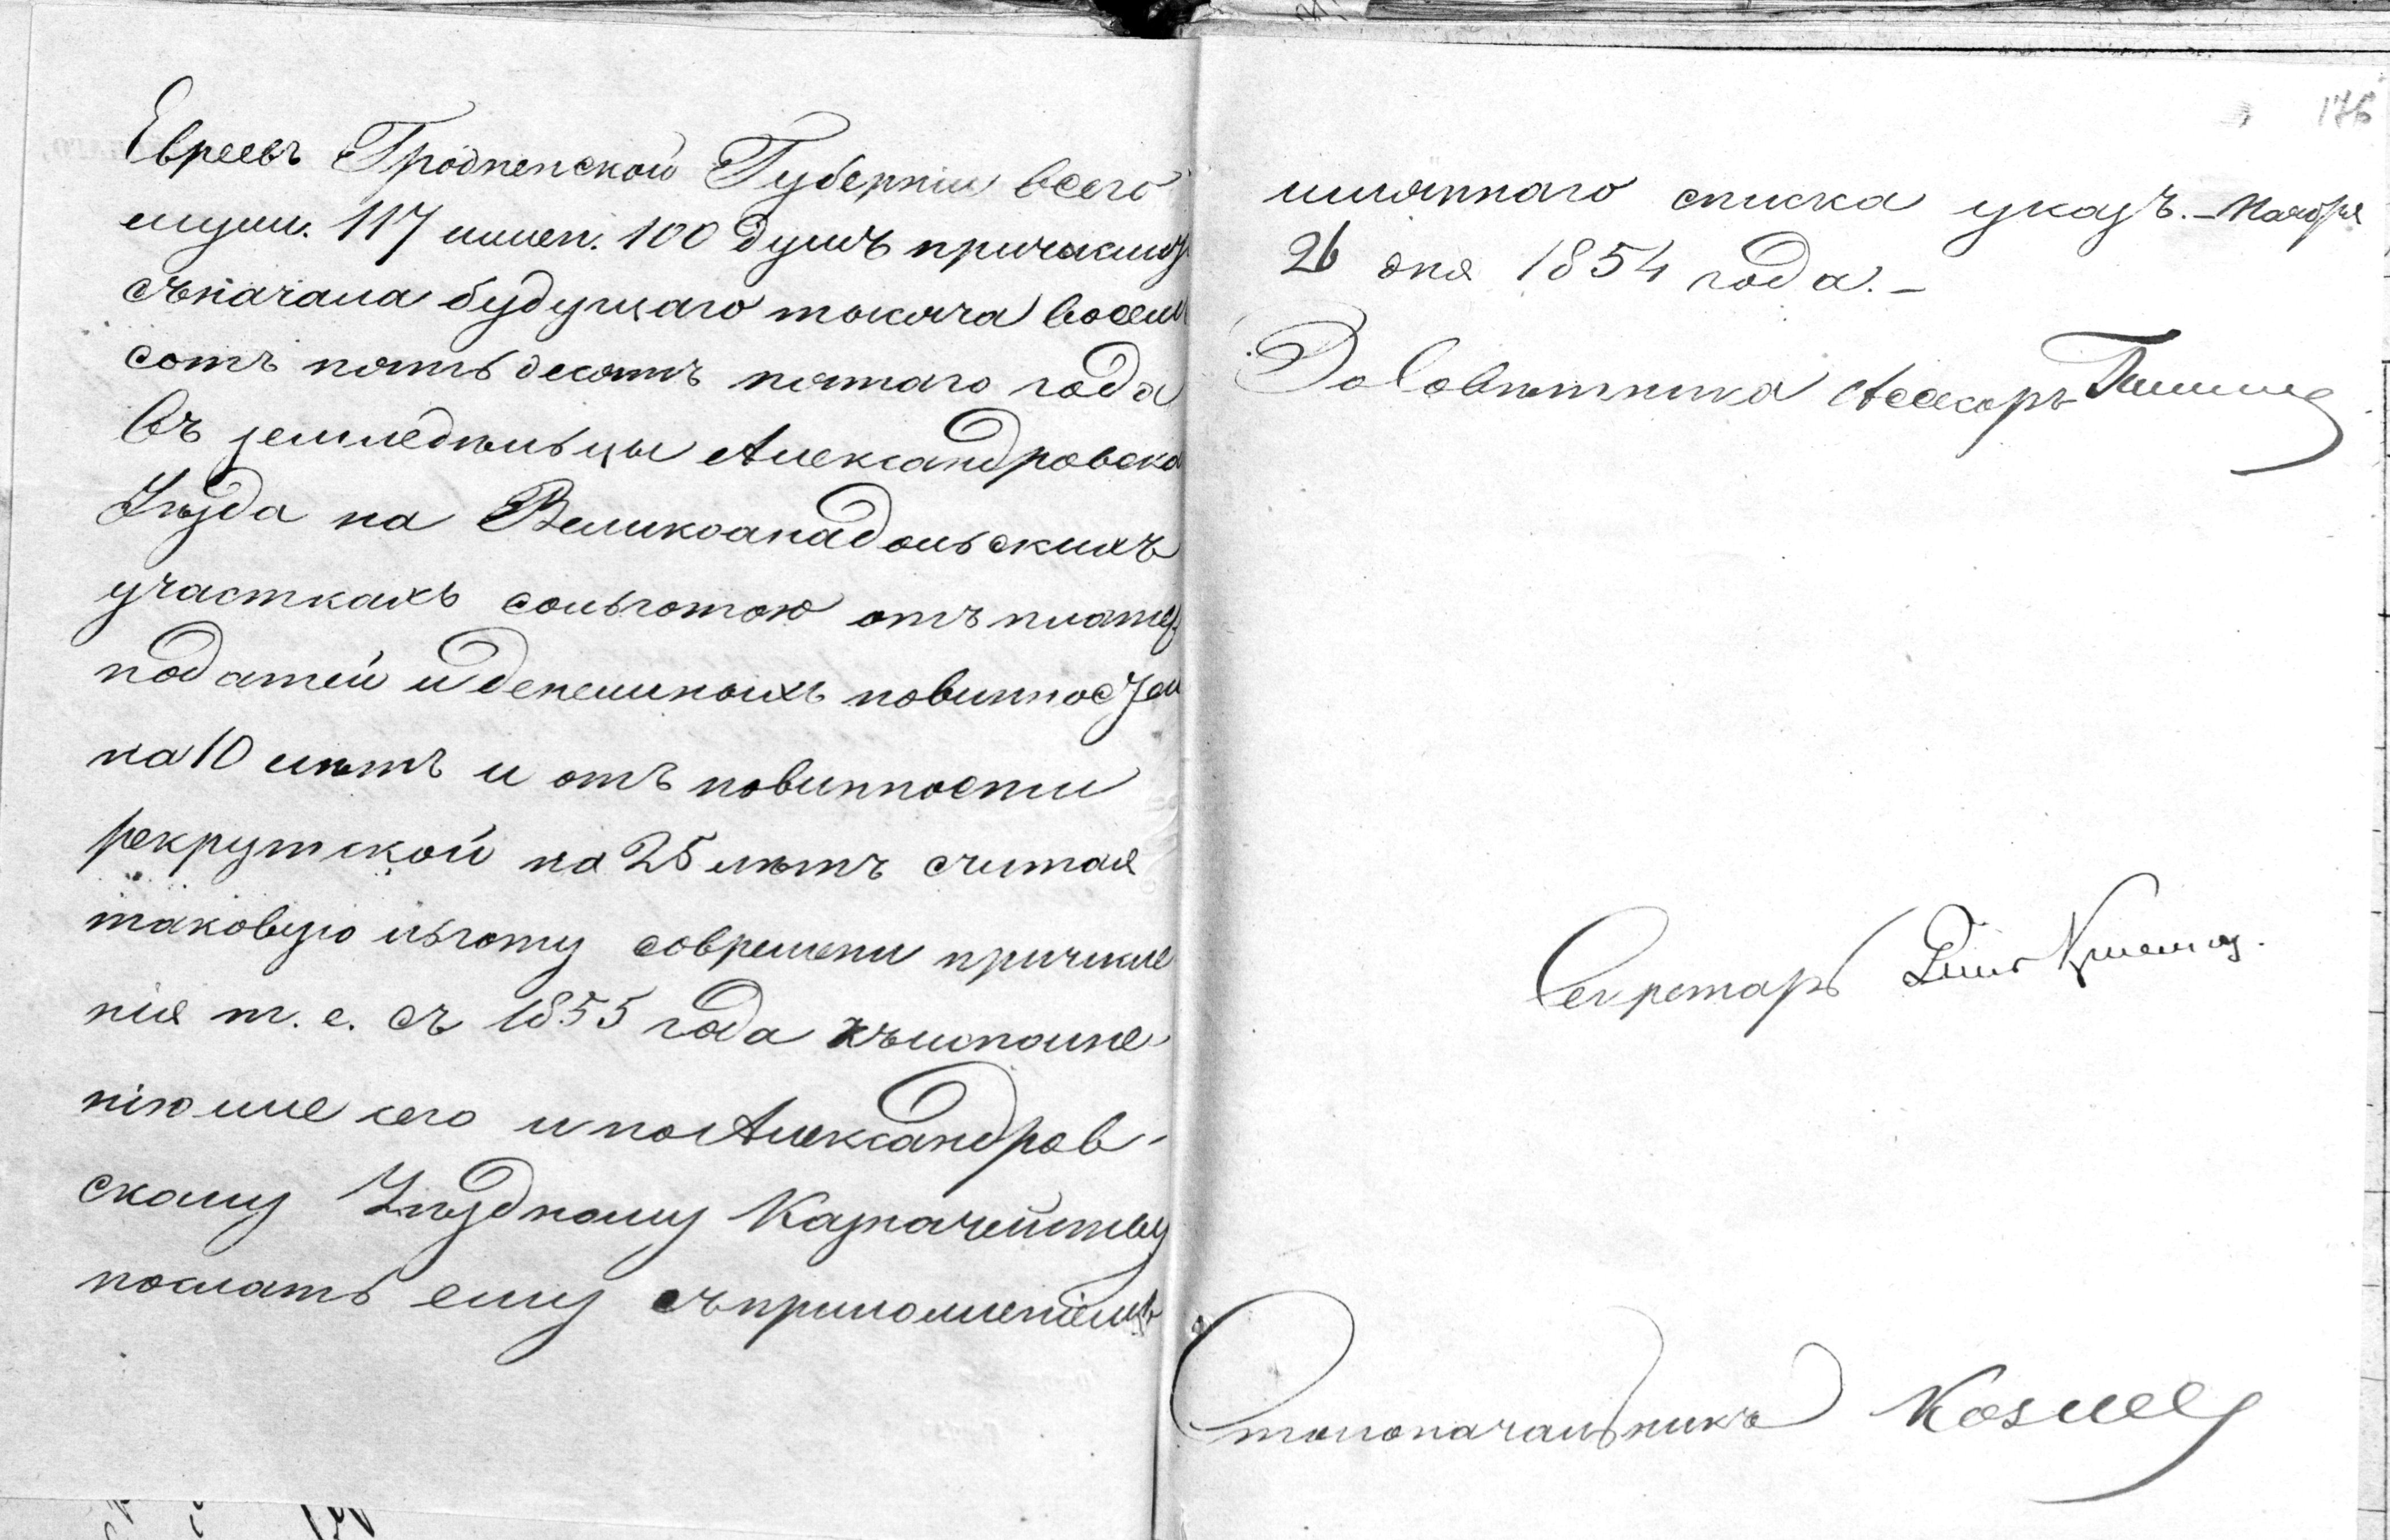 Евреевъ Гродненской Губерніи всего
мужи. 117 жен. 100 душъ причислит
съ начала будущаго тысяча восем
сотъ пятьдесятъ пятаго года
въ земледѣльцы Александровска
Уѣзда на Великоанадольскихъ
участкахъ со льготою отъ платеж
податей и денежныхъ повинностей
на 10 лѣтъ и отъ повинности
рекрутской на 25 лѣтъ считая
таковую льготу со времени причисле
нія т. е. съ 1855 года къ исполне-
нію же сего и по Александров-
скому Уѣздному Казначейству
послать ему съ приложеніемъ
176
имяннаго списка указъ. – Ноября
26 дня 1854 года. –
За Совѣтника Асессоръ
Секретарь
Столоначальникъ Козлов